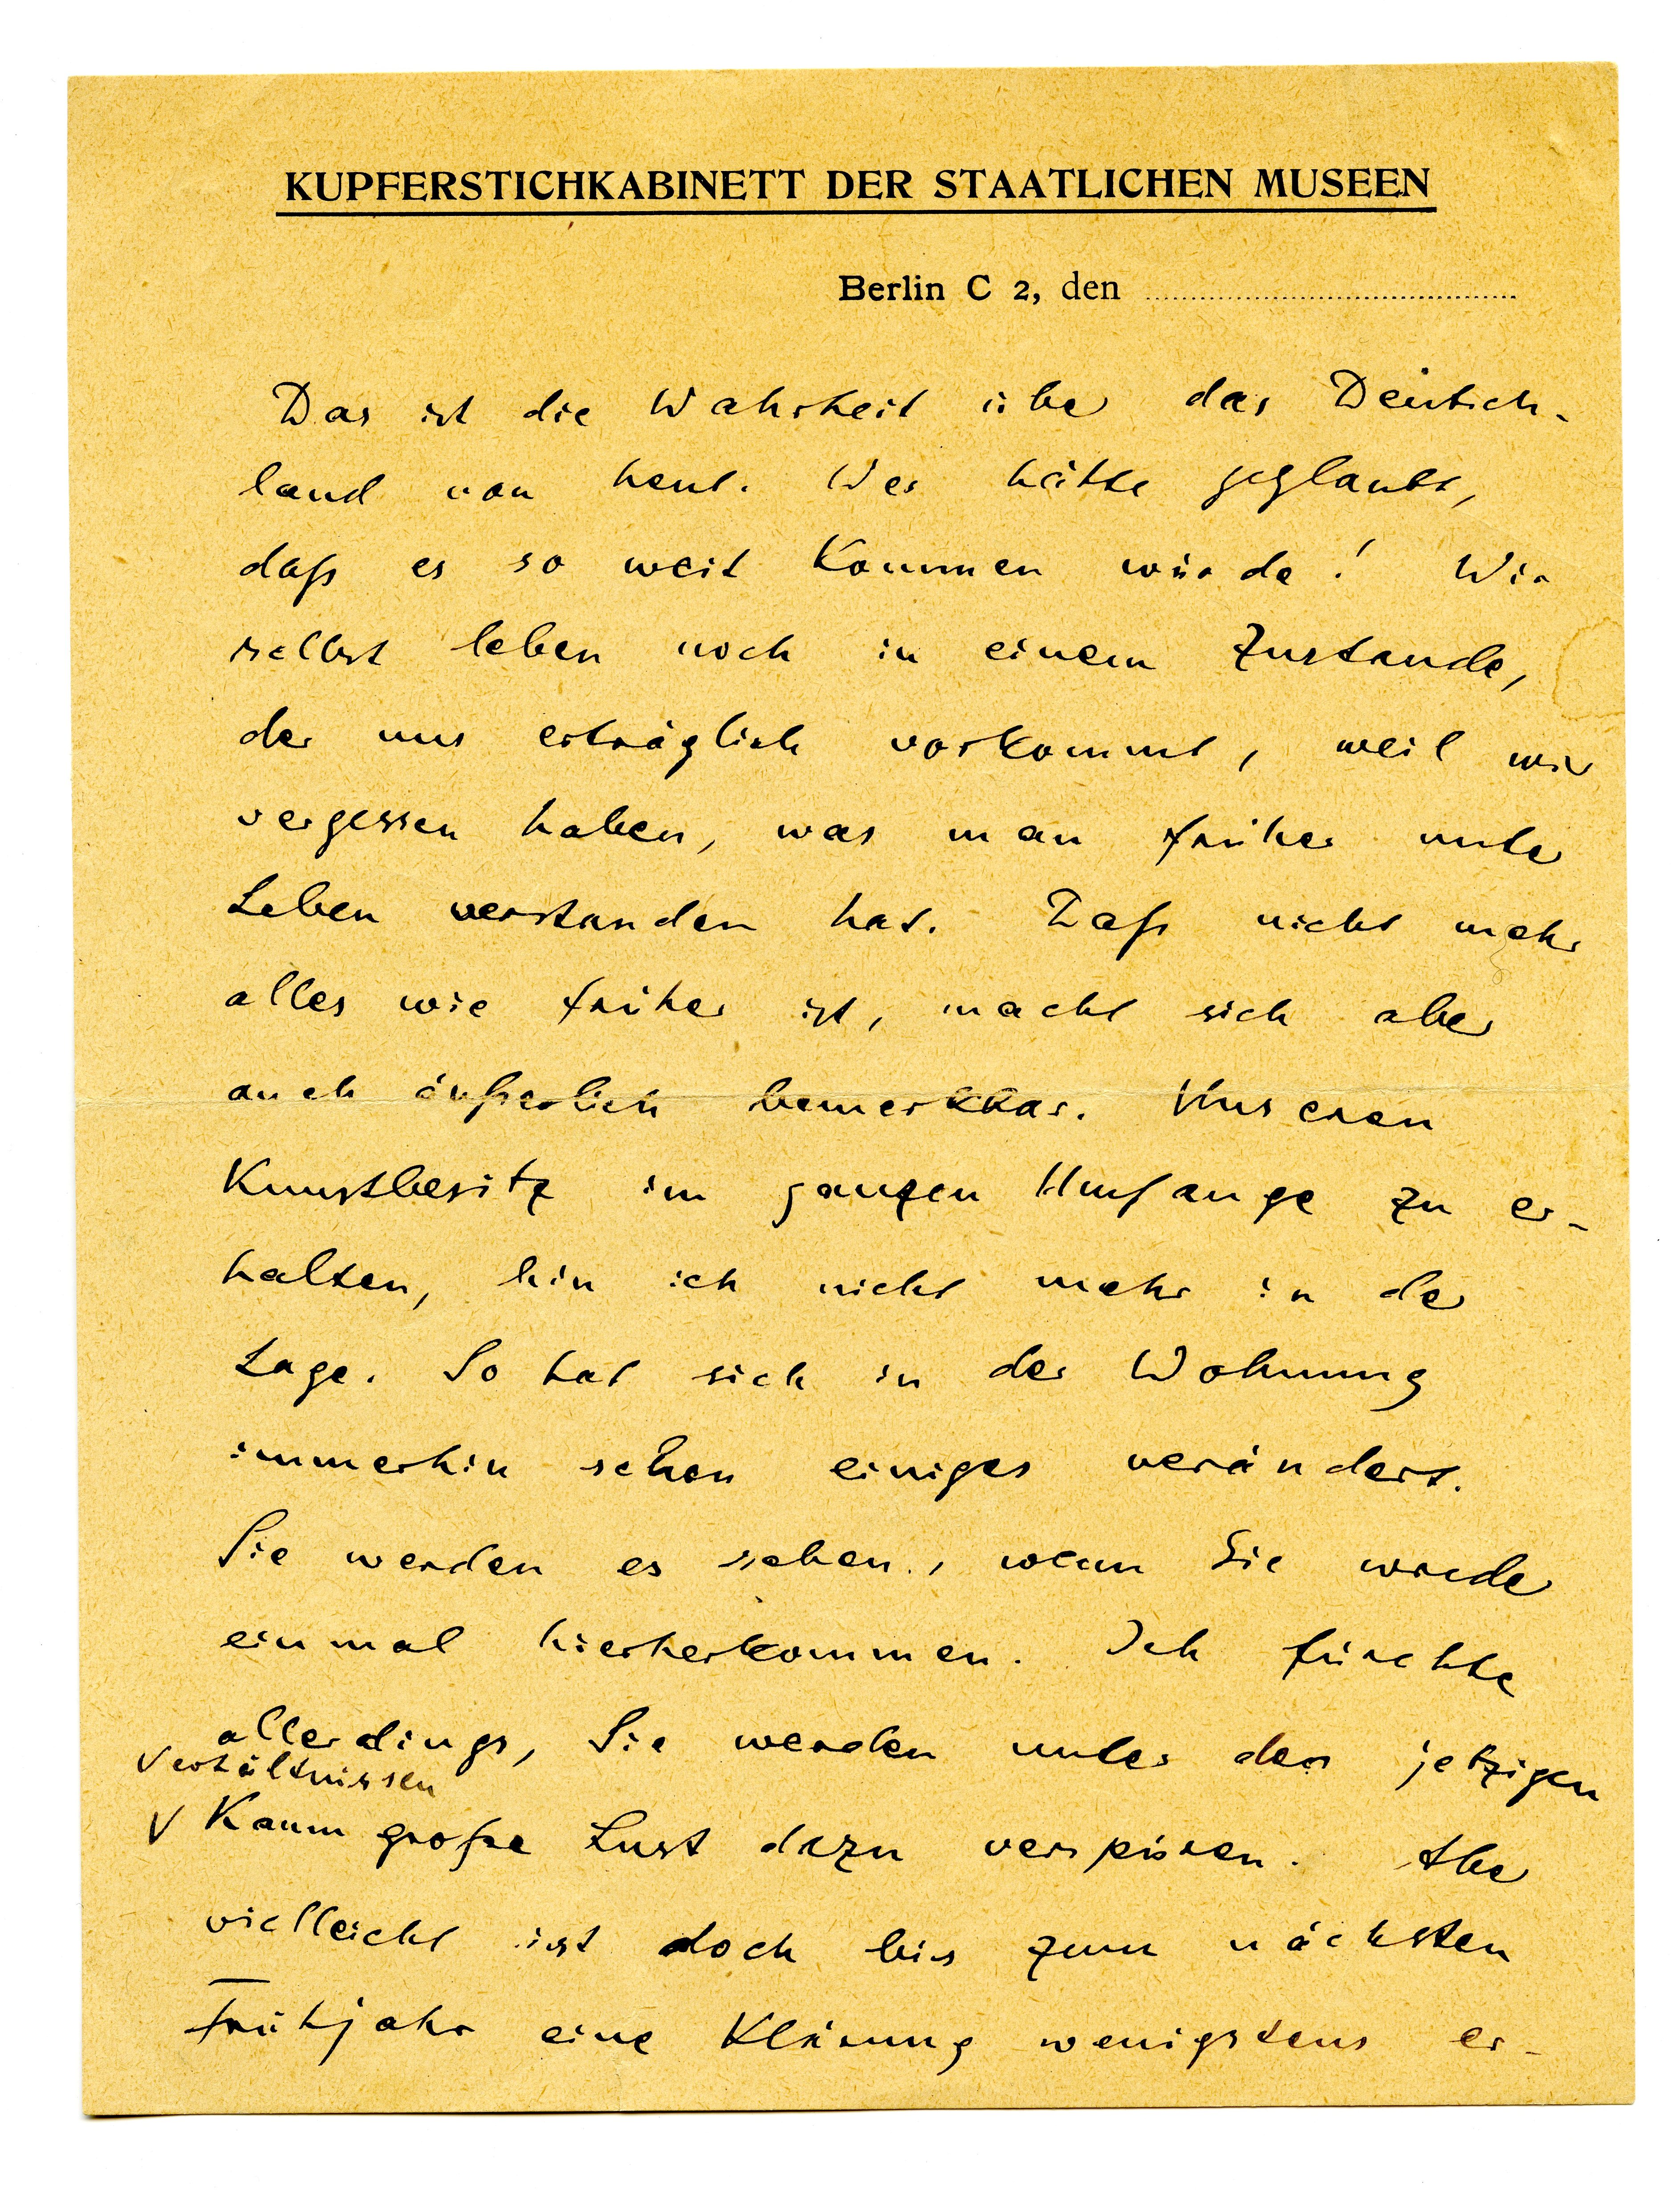 KUPFERSTICHKABINETT DER STAATLICHEN MUSEEN
Berlin C 2, den
Das ist die Wahrheit über das Deutsch-
land von heut. Wer hätte geglaubt,
daß es so weit kommen würde! Wir
selbst leben noch in einem Zustande,
der uns erträglich vorkommt, weil wir
vergessen haben, was man früher unter
Leben verstanden hat. Daß nicht mehr
alles wie früher ist, macht sich aber
auch äußerlich bemerkbar. Unseren
Kunstbesitz im ganzen Umfange zu er-
halten, bin ich nicht mehr in der
Lage. So hat sich in der Wohnung
immerhin schon einiges verändert.
Sie werden es sehen, wenn Sie wieder
einmal hierherkommen. Ich fürchte
allerdings, Sie werden unter den jetzigen
Verhältnissen
V Kaum große Lust dazu verspüren. Aber
vielleicht ist doch bis zum nächsten
Frühjahr eine Klärung wenigstens er-